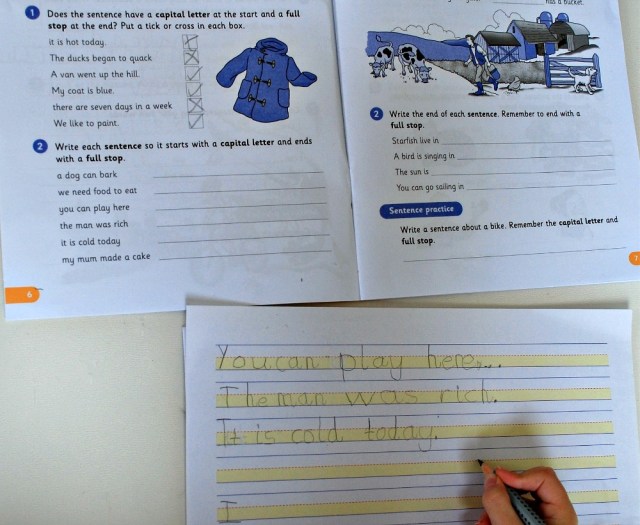 1 Does the sentence have a capital letter at the start and a full
stop at the end? Put a tick or cross in each box.
it is hot today.
The ducks began to quack
A van went up the hill.
My coat is blue.
there are seven days in a week
We like to paint.
2 Write each sentence so it starts with a capital letter and ends
with a full stop.
a dog can bark
we need food to eat
you can play here
the man was rich
it is cold today
my mum made a cake
6
has a bucket.
2 Write the end of each sentence. Remember to end with a
full stop.
Starfish live in
A bird is singing in
The sun is
You can go sailing in
Sentence practice
Write a sentence about a bike. Remember the capital letter and
full stop.
7
You can play here...
The man was rich.
It is cold today.
I